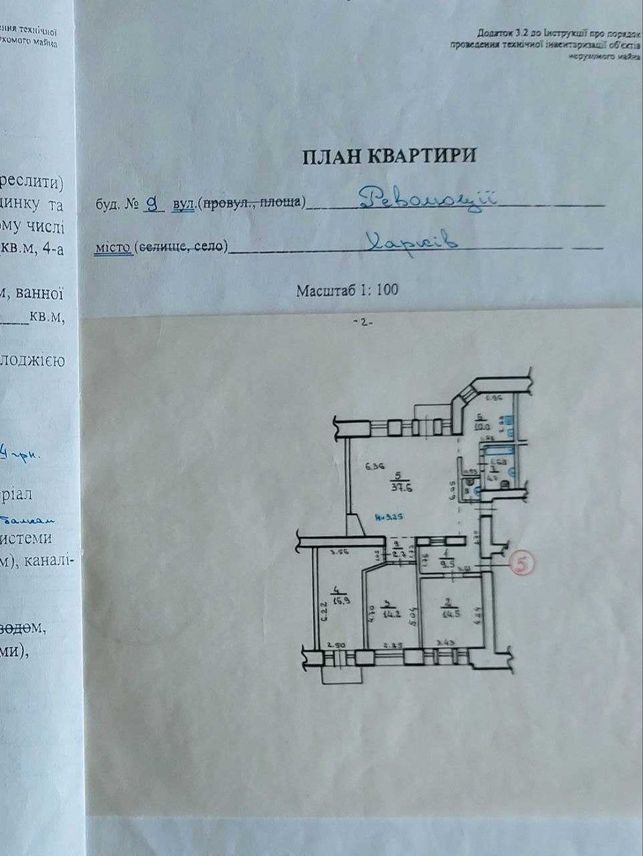 ення технічної
ухомого майна
реслити)
цинку та
ому числі
кв.м, 4-а
м, ванної
кв.м,
лоджією
4 грн.
еріал
балкам
истеми
м), каналі-
водом,
ми),
Додаток 3.2 до Інструкції про порядок
проведення технічної інвентаризації об'єктів
нерухомого майна
ПЛАН КВАРТИРИ
буд. № 9 вул.(провул., площа) Революції
місто (селище, село) Харків
Масштаб 1: 100
-2-
6.36
5
37.6
6.05
H=3.25
6
10.0
3.56
4
15.9
6.22
2.50
4.70
3
14.2
5.04
2.85
1
9.5
2
14.5
3.43
5